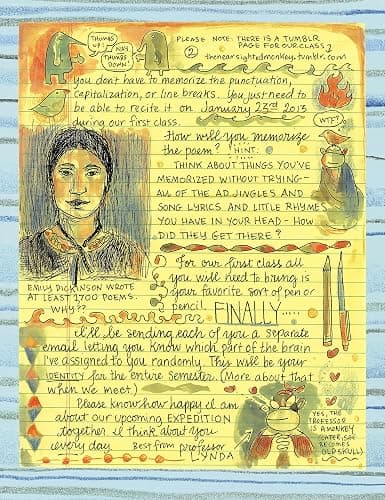 THUMBS UP!
NAY THUMBS DOWN.
②
PLEASE NOTE: THERE IS A TUMBLR
PAGE FOR OUR CLASS
thenearsightedmonkey.tumblr.com
You don't have to memorize the punctuation,
capitalization, or line breaks. You just need to
be able to recite it on January 23rd 2013
during our first class.
WTF?
How will you memorize
the poem? HINT:
THINK ABOUT THINGS YOU'VE
MEMORIZED WITHOUT TRYING—
ALL OF THE AD JINGLES AND
SONG LYRICS AND LITTLE RHYMES
YOU HAVE IN YOUR HEAD - HOW
DID THEY GET THERE?
EMILY DICKINSON WROTE
AT LEAST 1700 POEMS.
WHY??
For our first class all
you will need to bring is
your favorite sort of pen or
pencil. FINALLY.....
I'll be sending each of you a separate
email letting you know which part of the brain
I've assigned to you randomly. This will be your
IDENTITY for the entire semester. (More about that
when we meet)
Please know how happy I am
about our upcoming EXPEDITION
together. I think about you
every day. Best from professor
LYNDA
YES, THE
PROFESSOR
IS A MONKEY
(LATER, SHE
BECOMES
OLD SKULL)